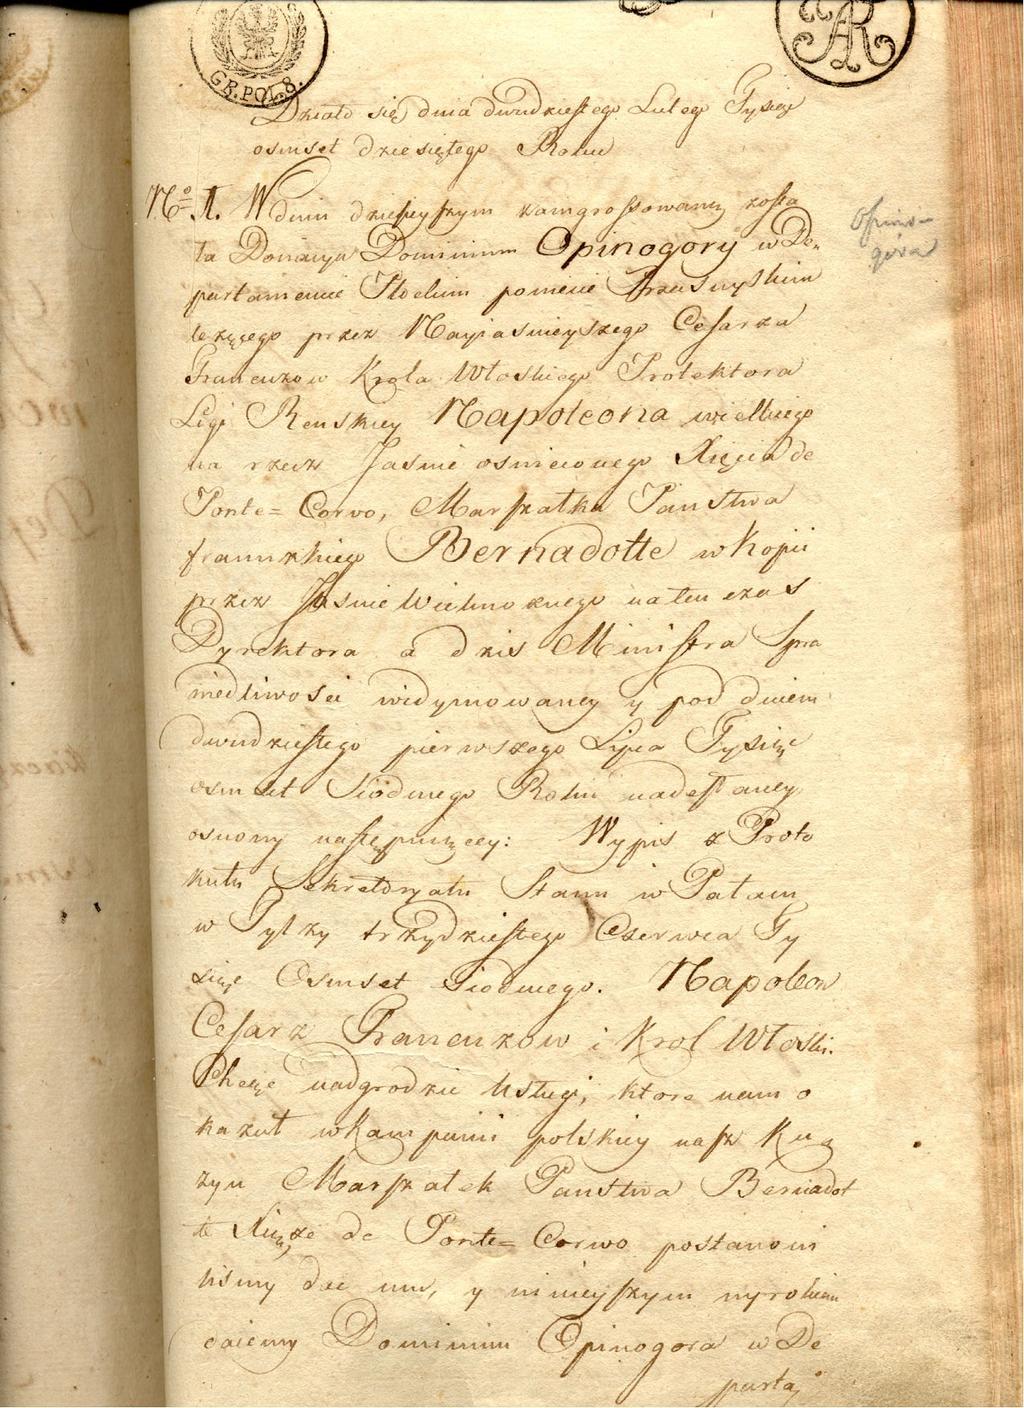 GR.POL.8.
AR
Działo się dnia dwudziestego Lutego Tysiąc
osmset dziesiątego Roku
No 1. W dniu dzisieyszym zamgrossowaney zosta
ła Donacya Dominium Opinogory w De-
partamencie Płockim powiecie Przasnyskim
leżącego przez Nayiaśnieyszego Cesarza
Francuzow Krola Włoskiego Protektora
Ligi Renskiey Napoleona wielkiego
na rzecz Jaśnie oswieconego Xięcia de
Ponte=Corvo, Marszałka Państwa
francuzkiego Bernadotte w kopii
przez Jaśnie Wielmożnego natenczas
Dyrektora a dziś Ministra Spra
wiedliwości widymowaney y pod dniem
dwudziestego pierwszego Lipca Tysiąc
osmset Siodmego Roku nadesłaney
osnowy następuiącey: Wypis z Proto
kułu Sekretaryatu Stanu w Pałacu
w Tylży trzydziestego Czerwca Ty
siąc Osmset Siodmego. Napoleon
Cesarz Francuzow i Krol Włoski.
Chcąc nadgrodzić Usługi, ktore nam o
kazał w kampanii polskiey nasz Ku
zyn Marszałek Państwa Bernadot
te Xiąże de Ponte=Corwo postanowi
liśmy dać mu, y ninieyszym wyrokiem
daiemy Dominium Opinogora w De
parta,
Opino-
góra